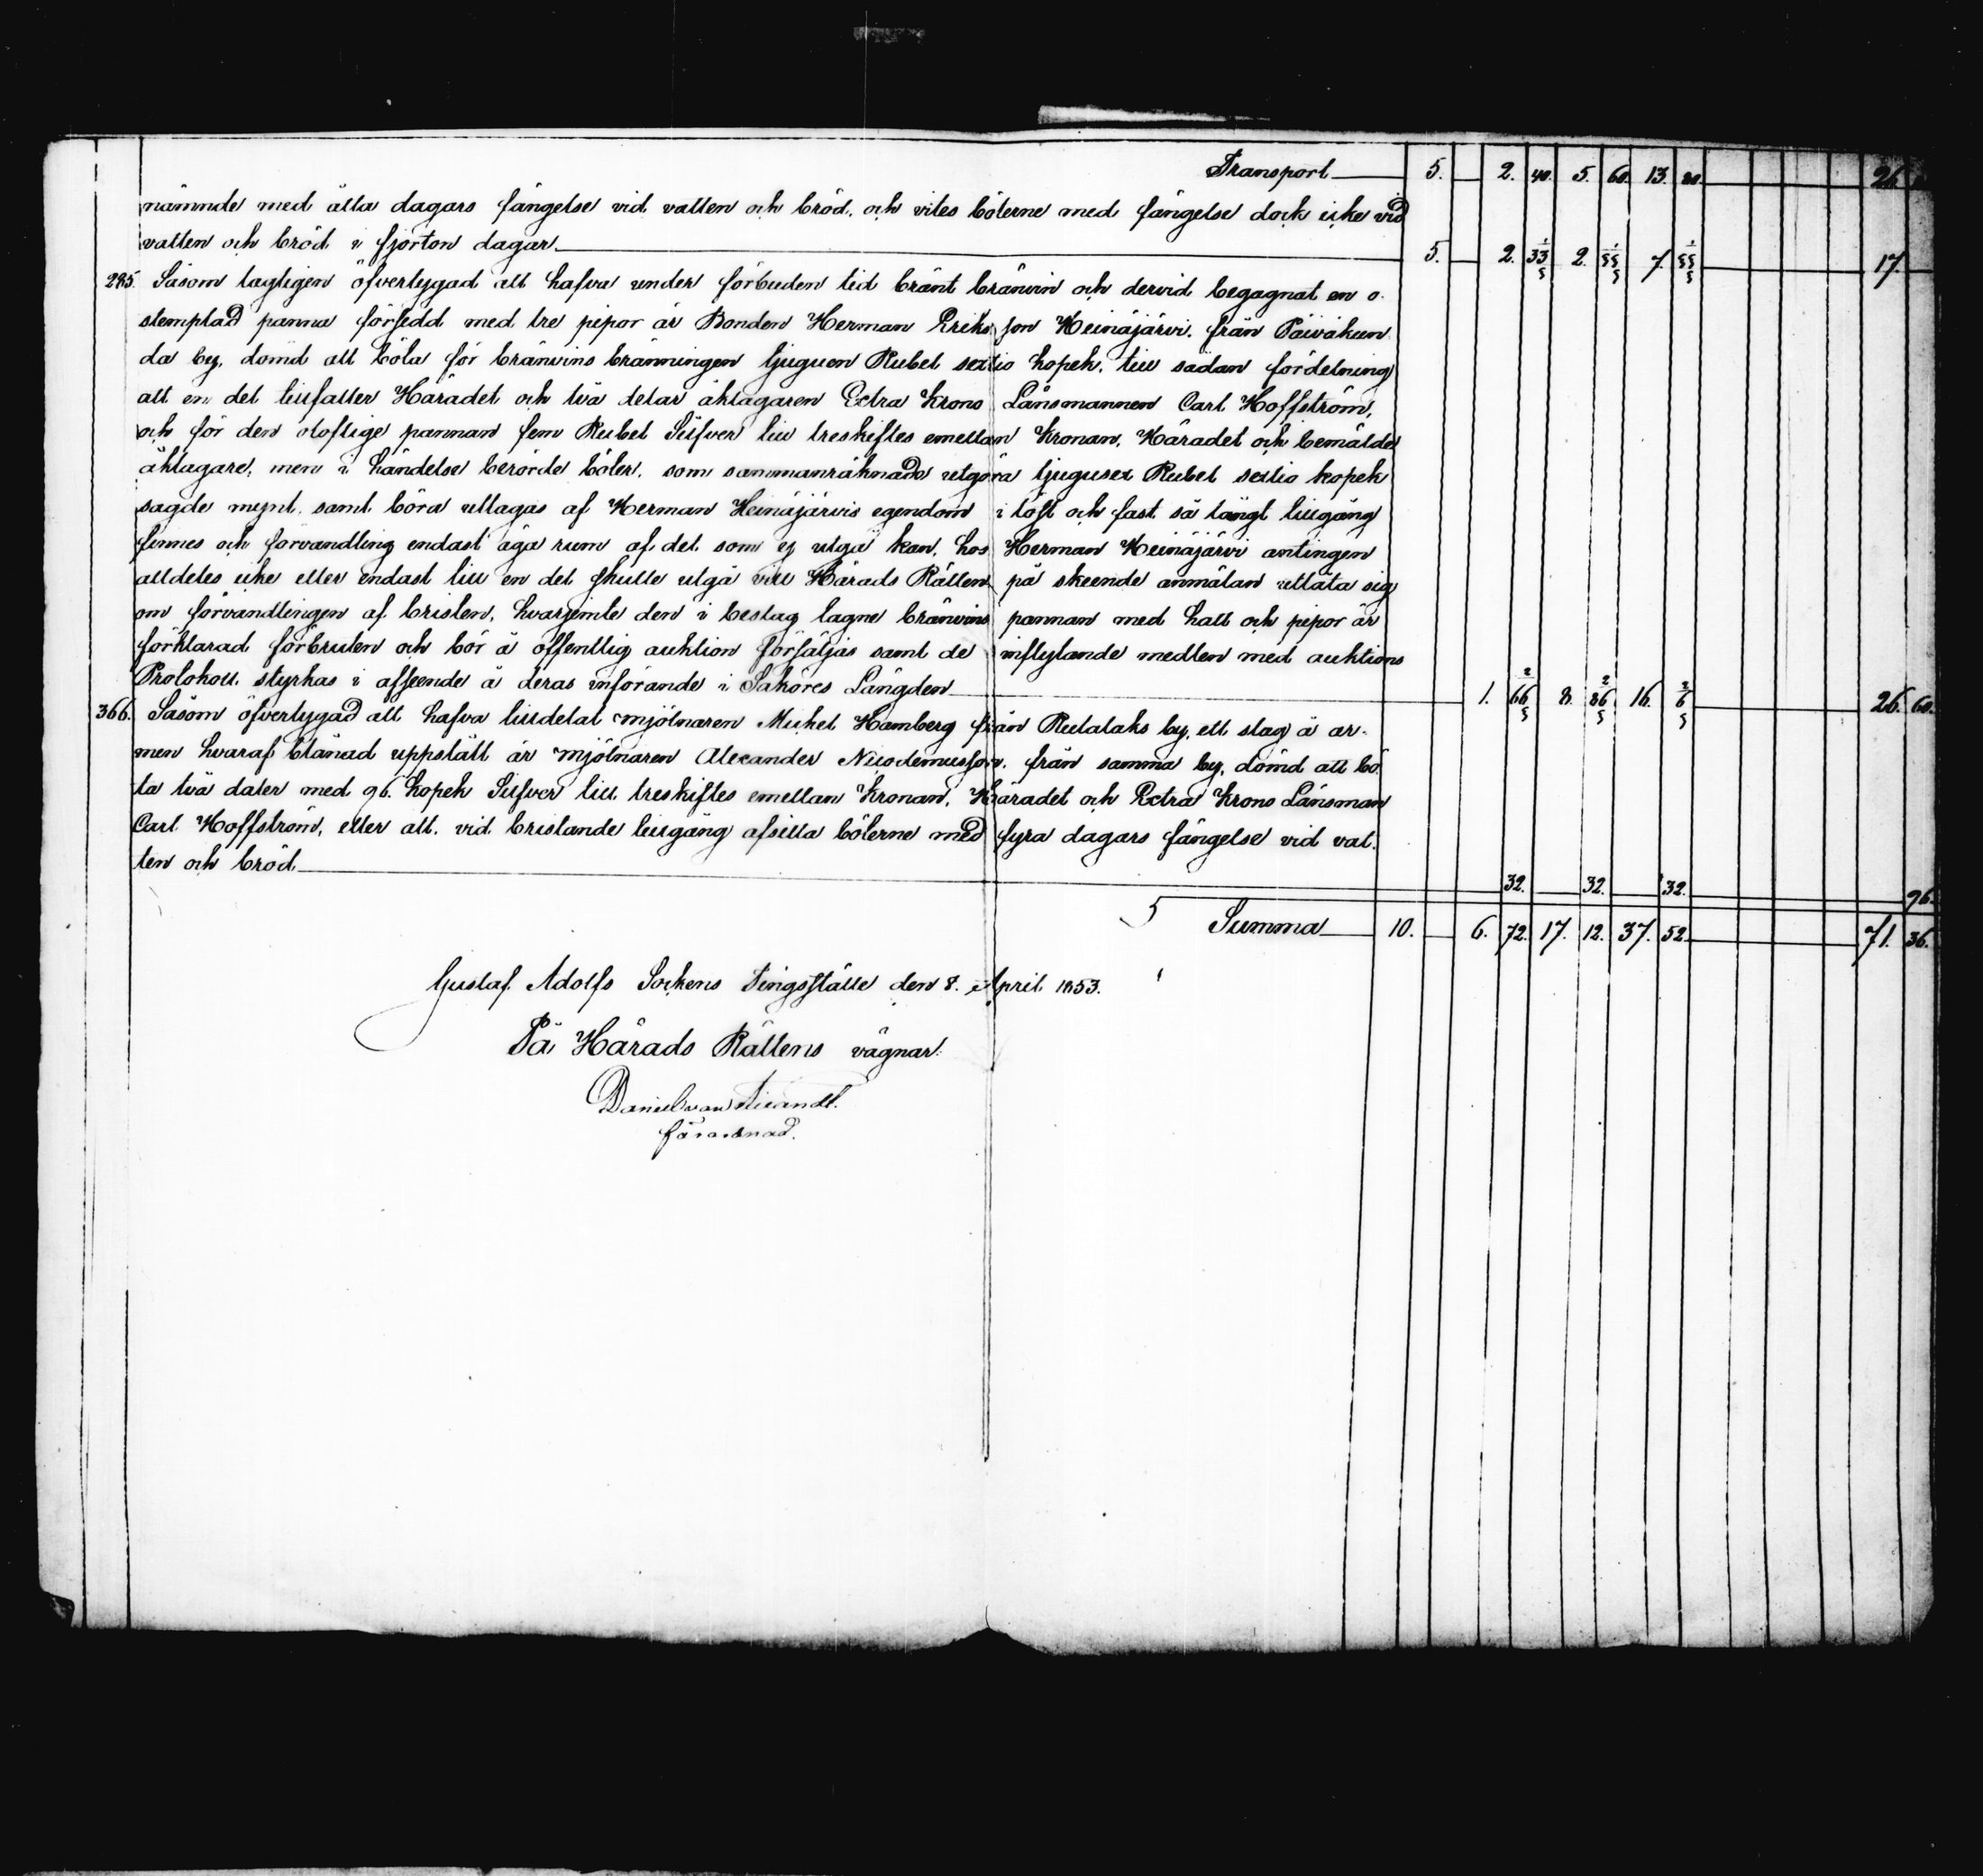 Transport 5. 2. 40. 5. 60. 13. 80. 26.
nämnde med åtta dagars fängelse vid vatten och bröd, och vites böterne med fängelse dock icke vid
vatten och bröd i fjorton dagar 5. 2. 33 1/3 2. 33 1/3 7. 33 1/3 17.
285. Såsom lagligen öfvertygad att hafva under förbuden tid bränt bränvin och dervid begagnat en o-
stemplad panna försedd med tre pipor är Bonden Herman Eriksson Heinäjärvi, från Päiväkun
da by, dömd att böta för bränvins bränningen tjuguen Rubel sextio kopek, till sådan fördelning
att en del tillfaller Häradet och två delar åklagaren Extra Krono Länsmannen Carl Hoffström,
och för den olaflige pannan fem Rubel Silfver till treskiftes emellan Kronan, Häradet och bemälde
åklagare; men i händelse berörde böter, som sammanräknade utgöra tjugusex Rubel sextio kopek
sagde mynt, samt böra uttagas af Herman Heinäjärvis egendom i löst och fast så långt tillgång
finnes och förvandling endast äga rum af det som ej utgå kan, hos Herman Heinäjärvi antingen
alldeles icke eller endast till en del skulle utgå vill Härads Rätten på skeende anmälan utlåta sig
om förvandlingen af bristen, hvarjemte den i beslag tagne bränvins pannan med hatt och pipor är
förklarad förbruten och bör å offentlig auktion försäljas samt de inflytande medlen med auktions
Protokoll styrkas i afseende å deras införande i Saköres Längden 1. 66 2/3 8. 86 2/3 16. 6 2/3 26. 60.
366. Såsom öfvertygad att hafva tilldelat mjölnaren Mickel Hamberg från Rutalaks by, ett slag å ar-
men hvaraf blånad uppstått är mjölnaren Alexander Nicodemusson, från samma by, dömd att bö-
ta två daler med 96. kopek Silfver till treskiftes emellan Kronan, Häradet och Extra Krono Länsman
Carl Hoffström, eller att, vid bristande tillgång afsitta böterne med fyra dagars fängelse vid vat-
ten och bröd 32. 32. 32. 96.
Summa 10. 6. 72. 17. 12. 37. 52. 71. 36.
Gustaf Adolfs Sockens Tingsställe den 8. April 1853.
På Härads Rättens vägnar:
Daniel